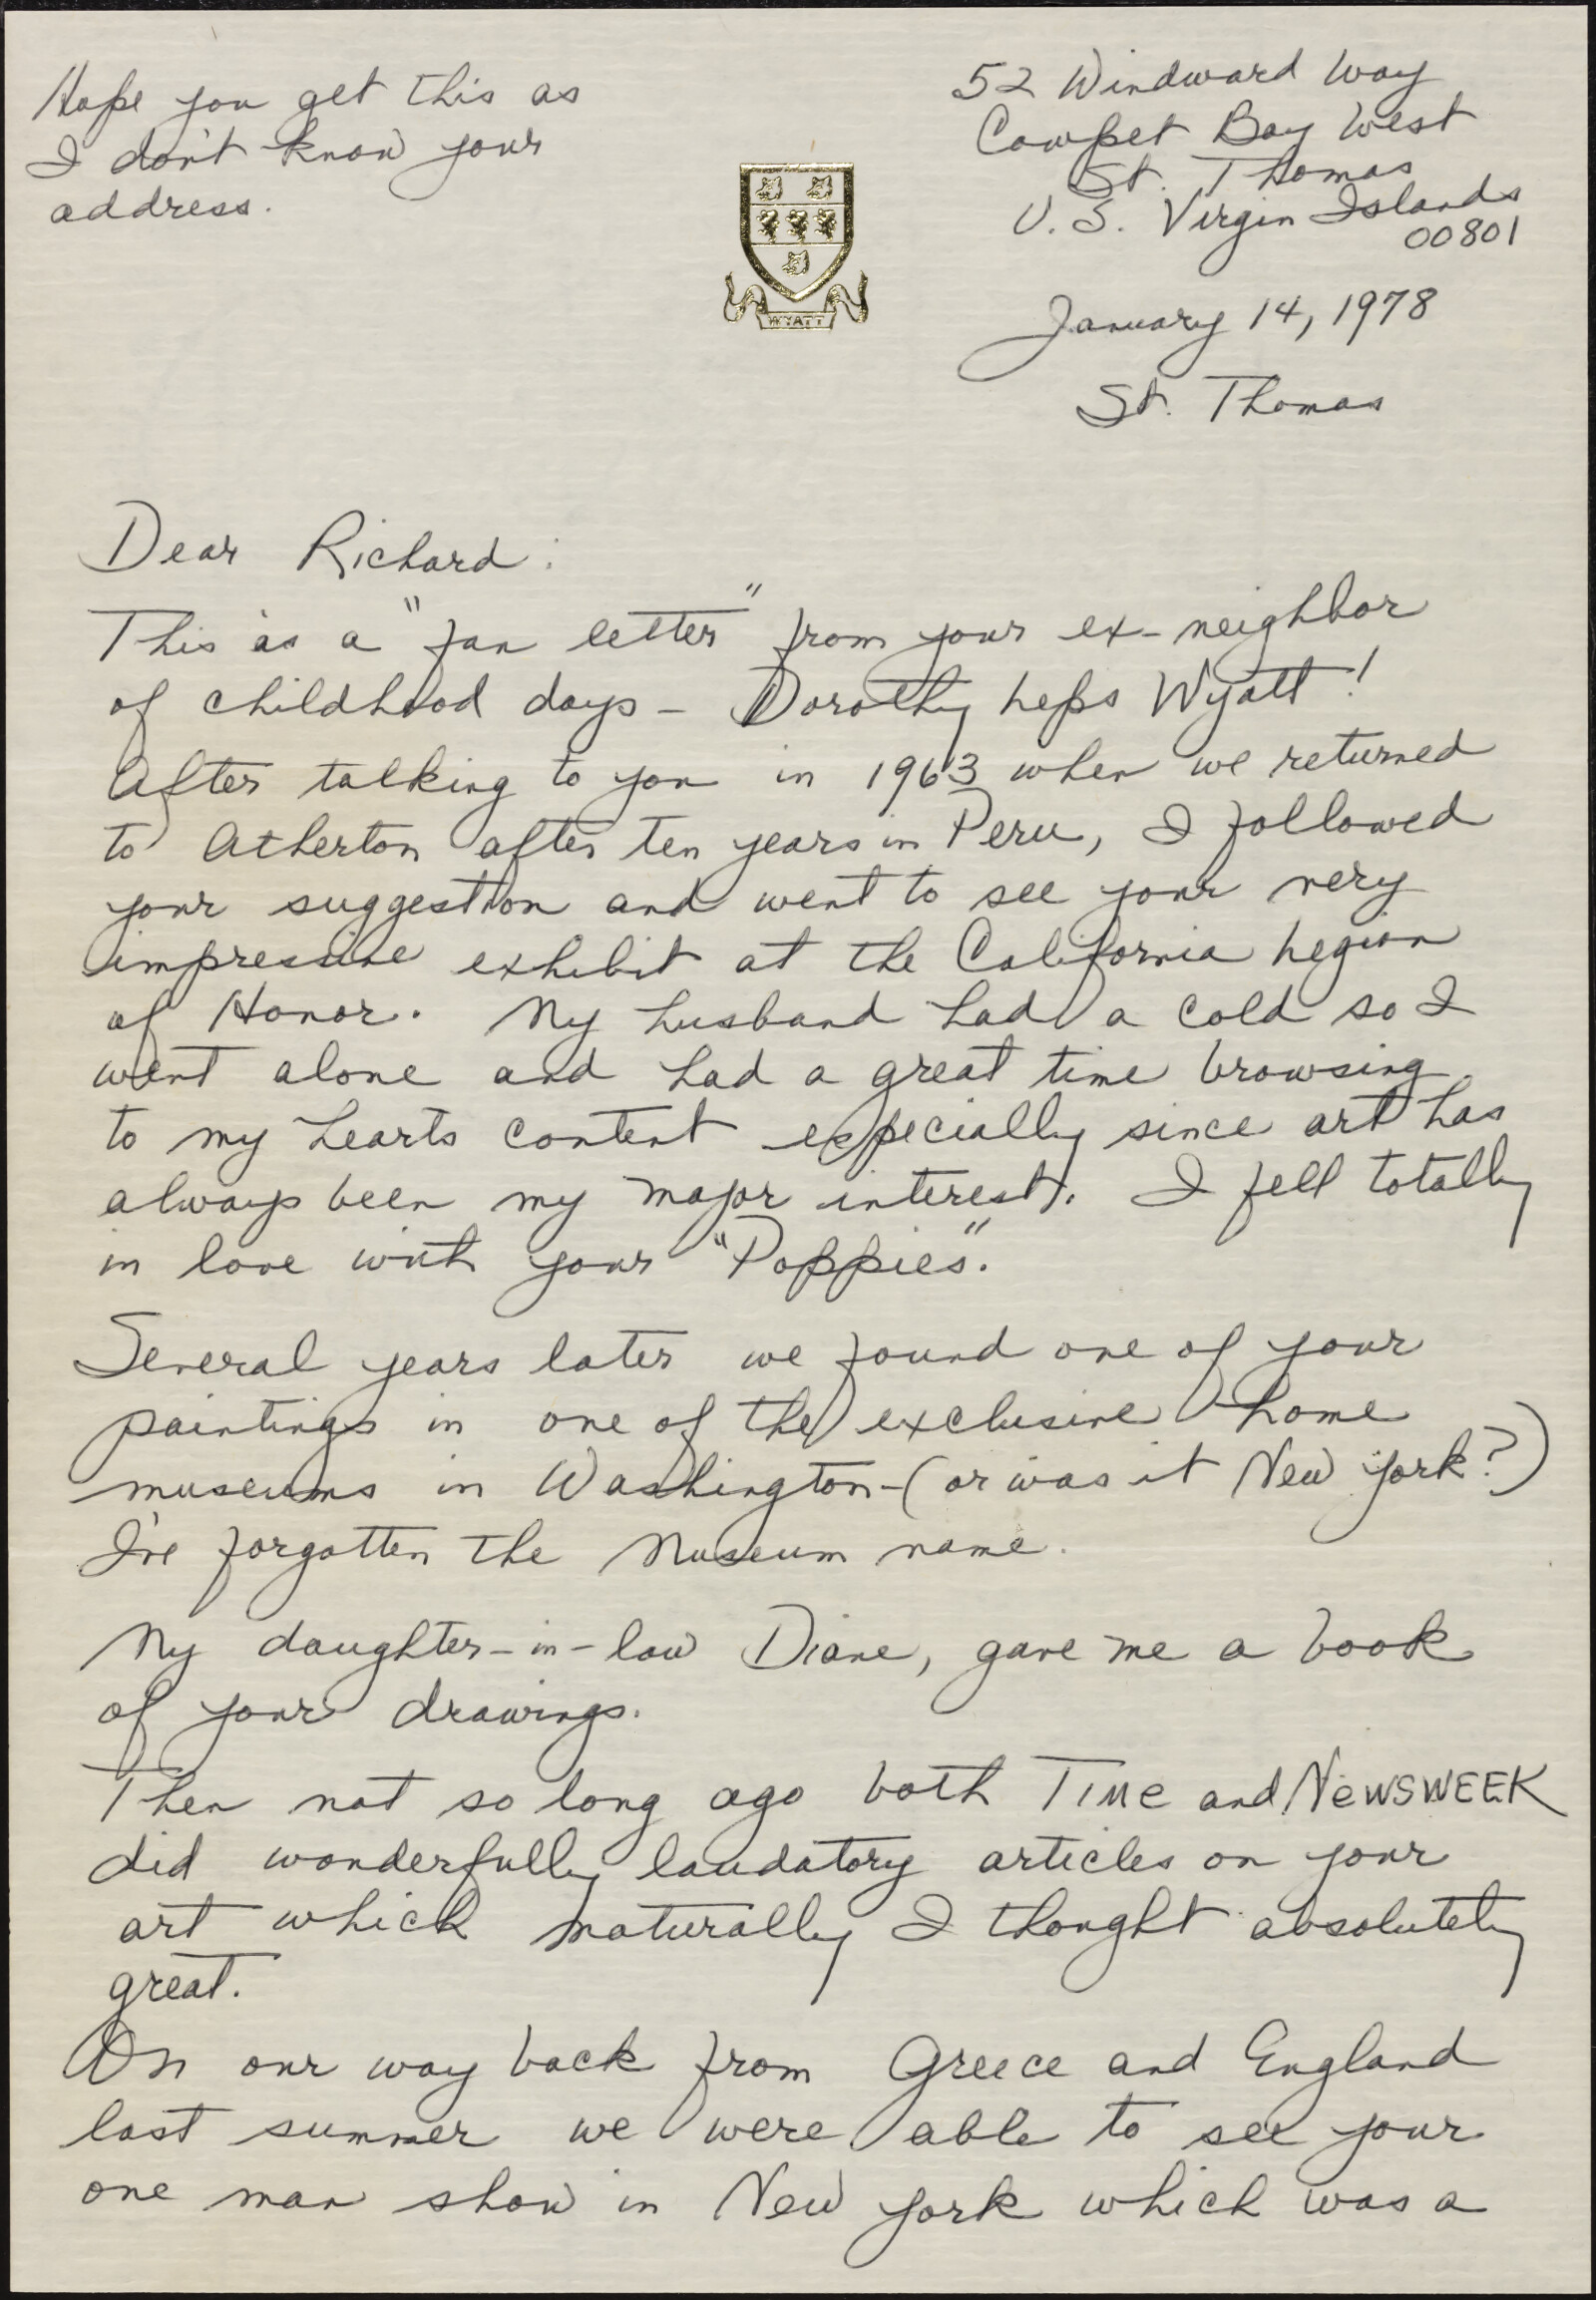 Hope you get this as
I don't know your
address.
52 Windward Way
Cowpet Bay West
St. Thomas
U.S. Virgin Islands
00801
WYATT
January 14, 1978
St. Thomas
Dear Richard:
This is a "fan letter" from your ex-neighbor
of childhood days - Dorothy Wyatt!
After talking to you in 1963 when we returned
to Atherton after ten years in Peru, I followed
your suggestion and went to see your very
impressive exhibit at the California Legion
of Honor. My husband had a cold so I
went alone and had a great time browsing
to my hearts content especially since art has
always been my major interest. I fell totally
in love with your "Poppies".
Several years later we found one of your
paintings in one of the exclusive home
museums in Washington - (or was it New York?)
I've forgotten the Museum name.
My daughter-in-law Diane, gave me a book
of your drawings.
Then not so long ago both TIME and NEWSWEEK
did wonderfully laudatory articles on your
art which naturally I thought absolutely
great.
On our way back from Greece and England
last summer we were able to see your
one man show in New York which was a